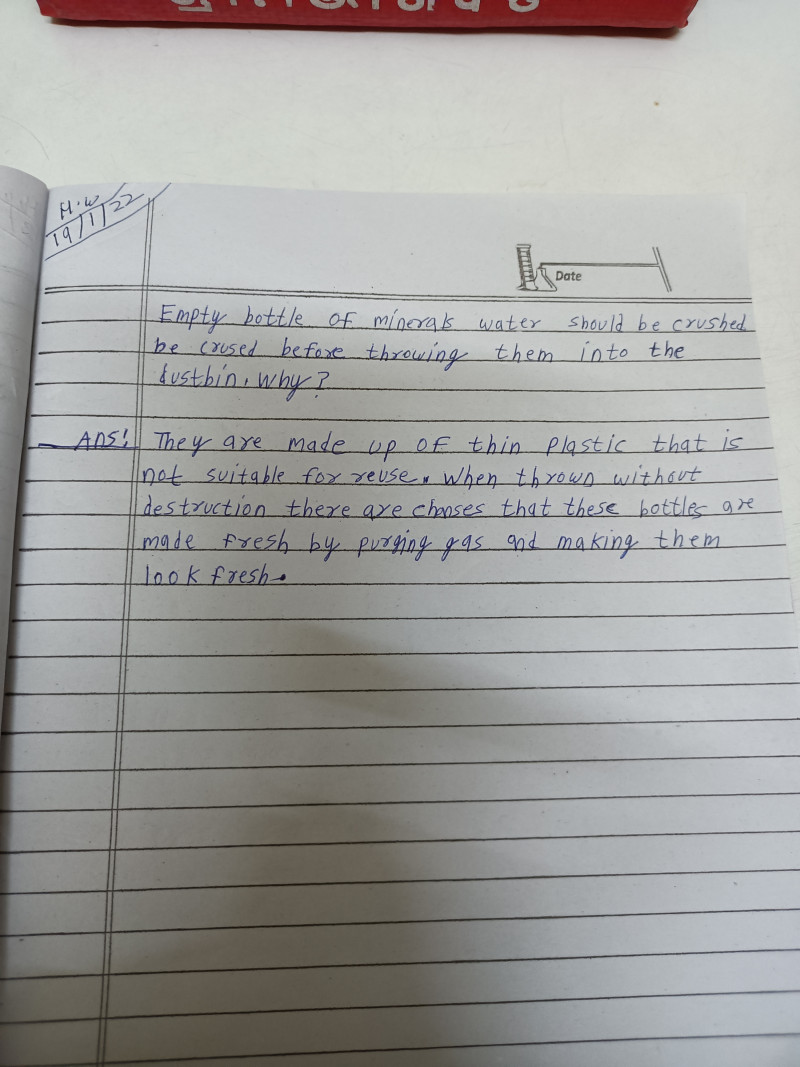 H.W
19/1/22
Date
Empty bottle of minerals water should be crushed
be crused before throwing them into the
dustbin. Why?
Ans! They are made up of thin plastic that is
not suitable for reuse. When thrown without
destruction there are chanses that these bottles are
made fresh by purging gas and making them
look fresh.